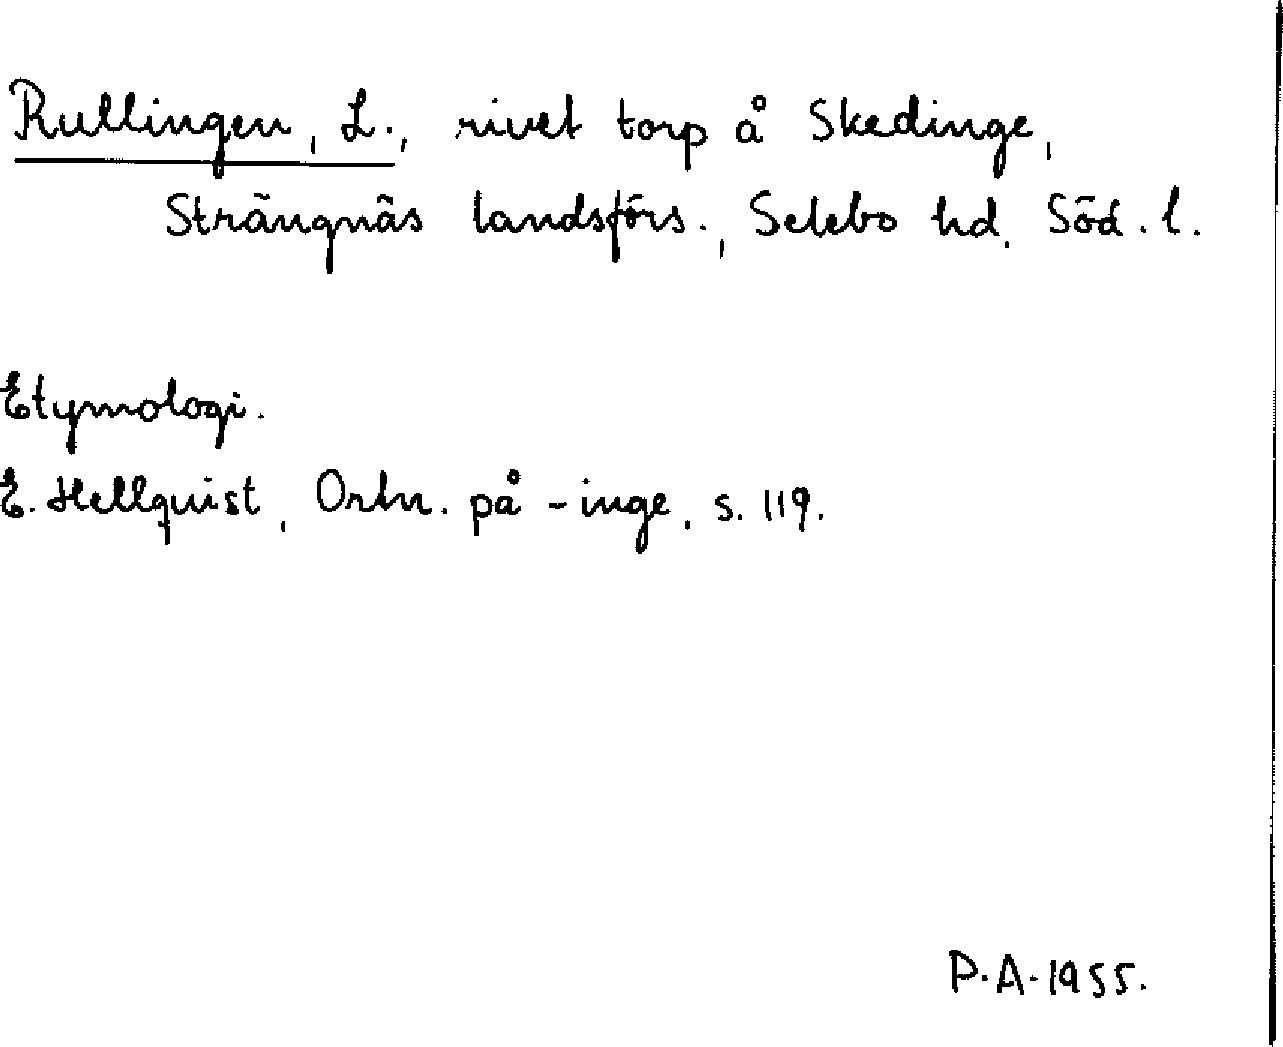 Rullingen, L., rivet torp å Skedinge,
Strängnäs landsförs., Selebo hd, Söd. l.
Etymologi.
E. Hellquist, Ortn. på -inge, s. 119.
P.A. 1955.